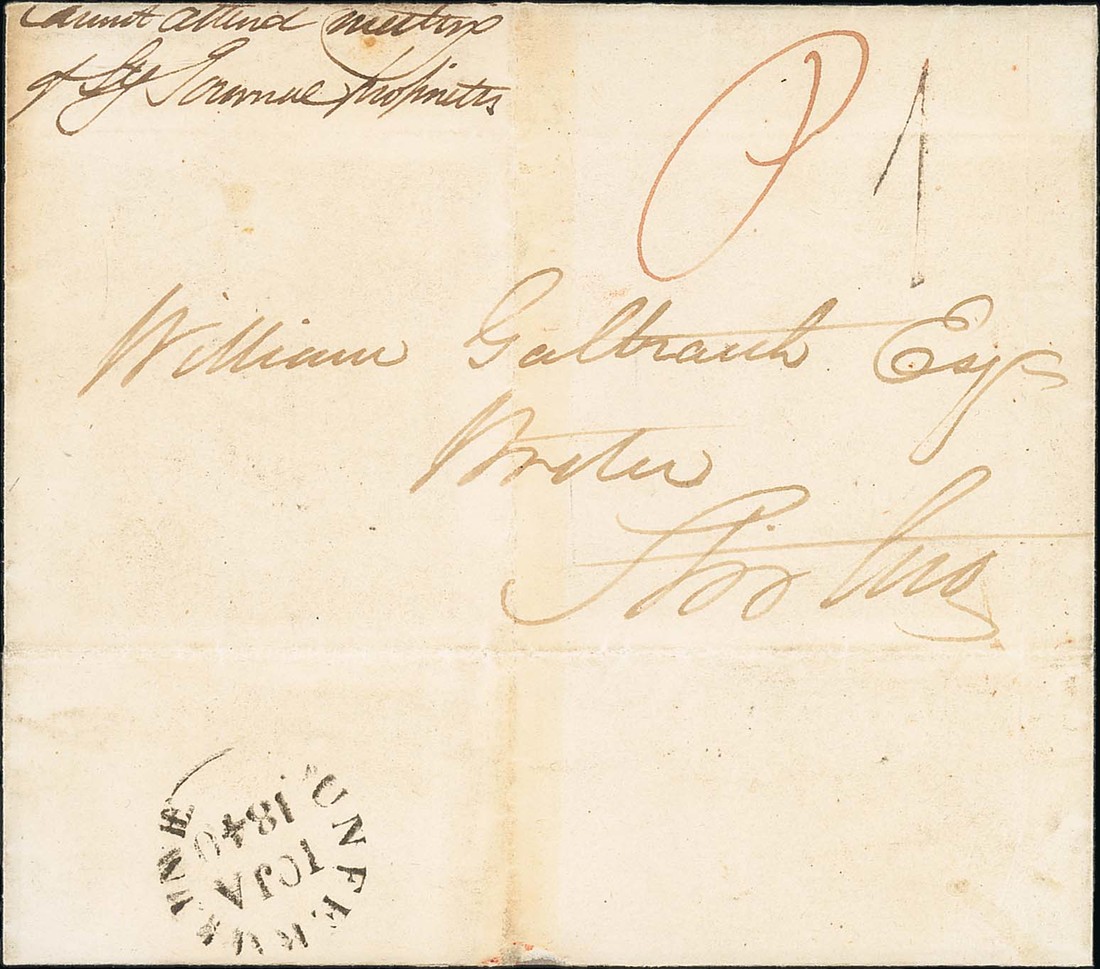 Cannot attend meeting
of Stg Journal proprietrs
P 1
William Galbraith Esqr
Writer
Stirling
DUNFERMLINE
10JA
1840